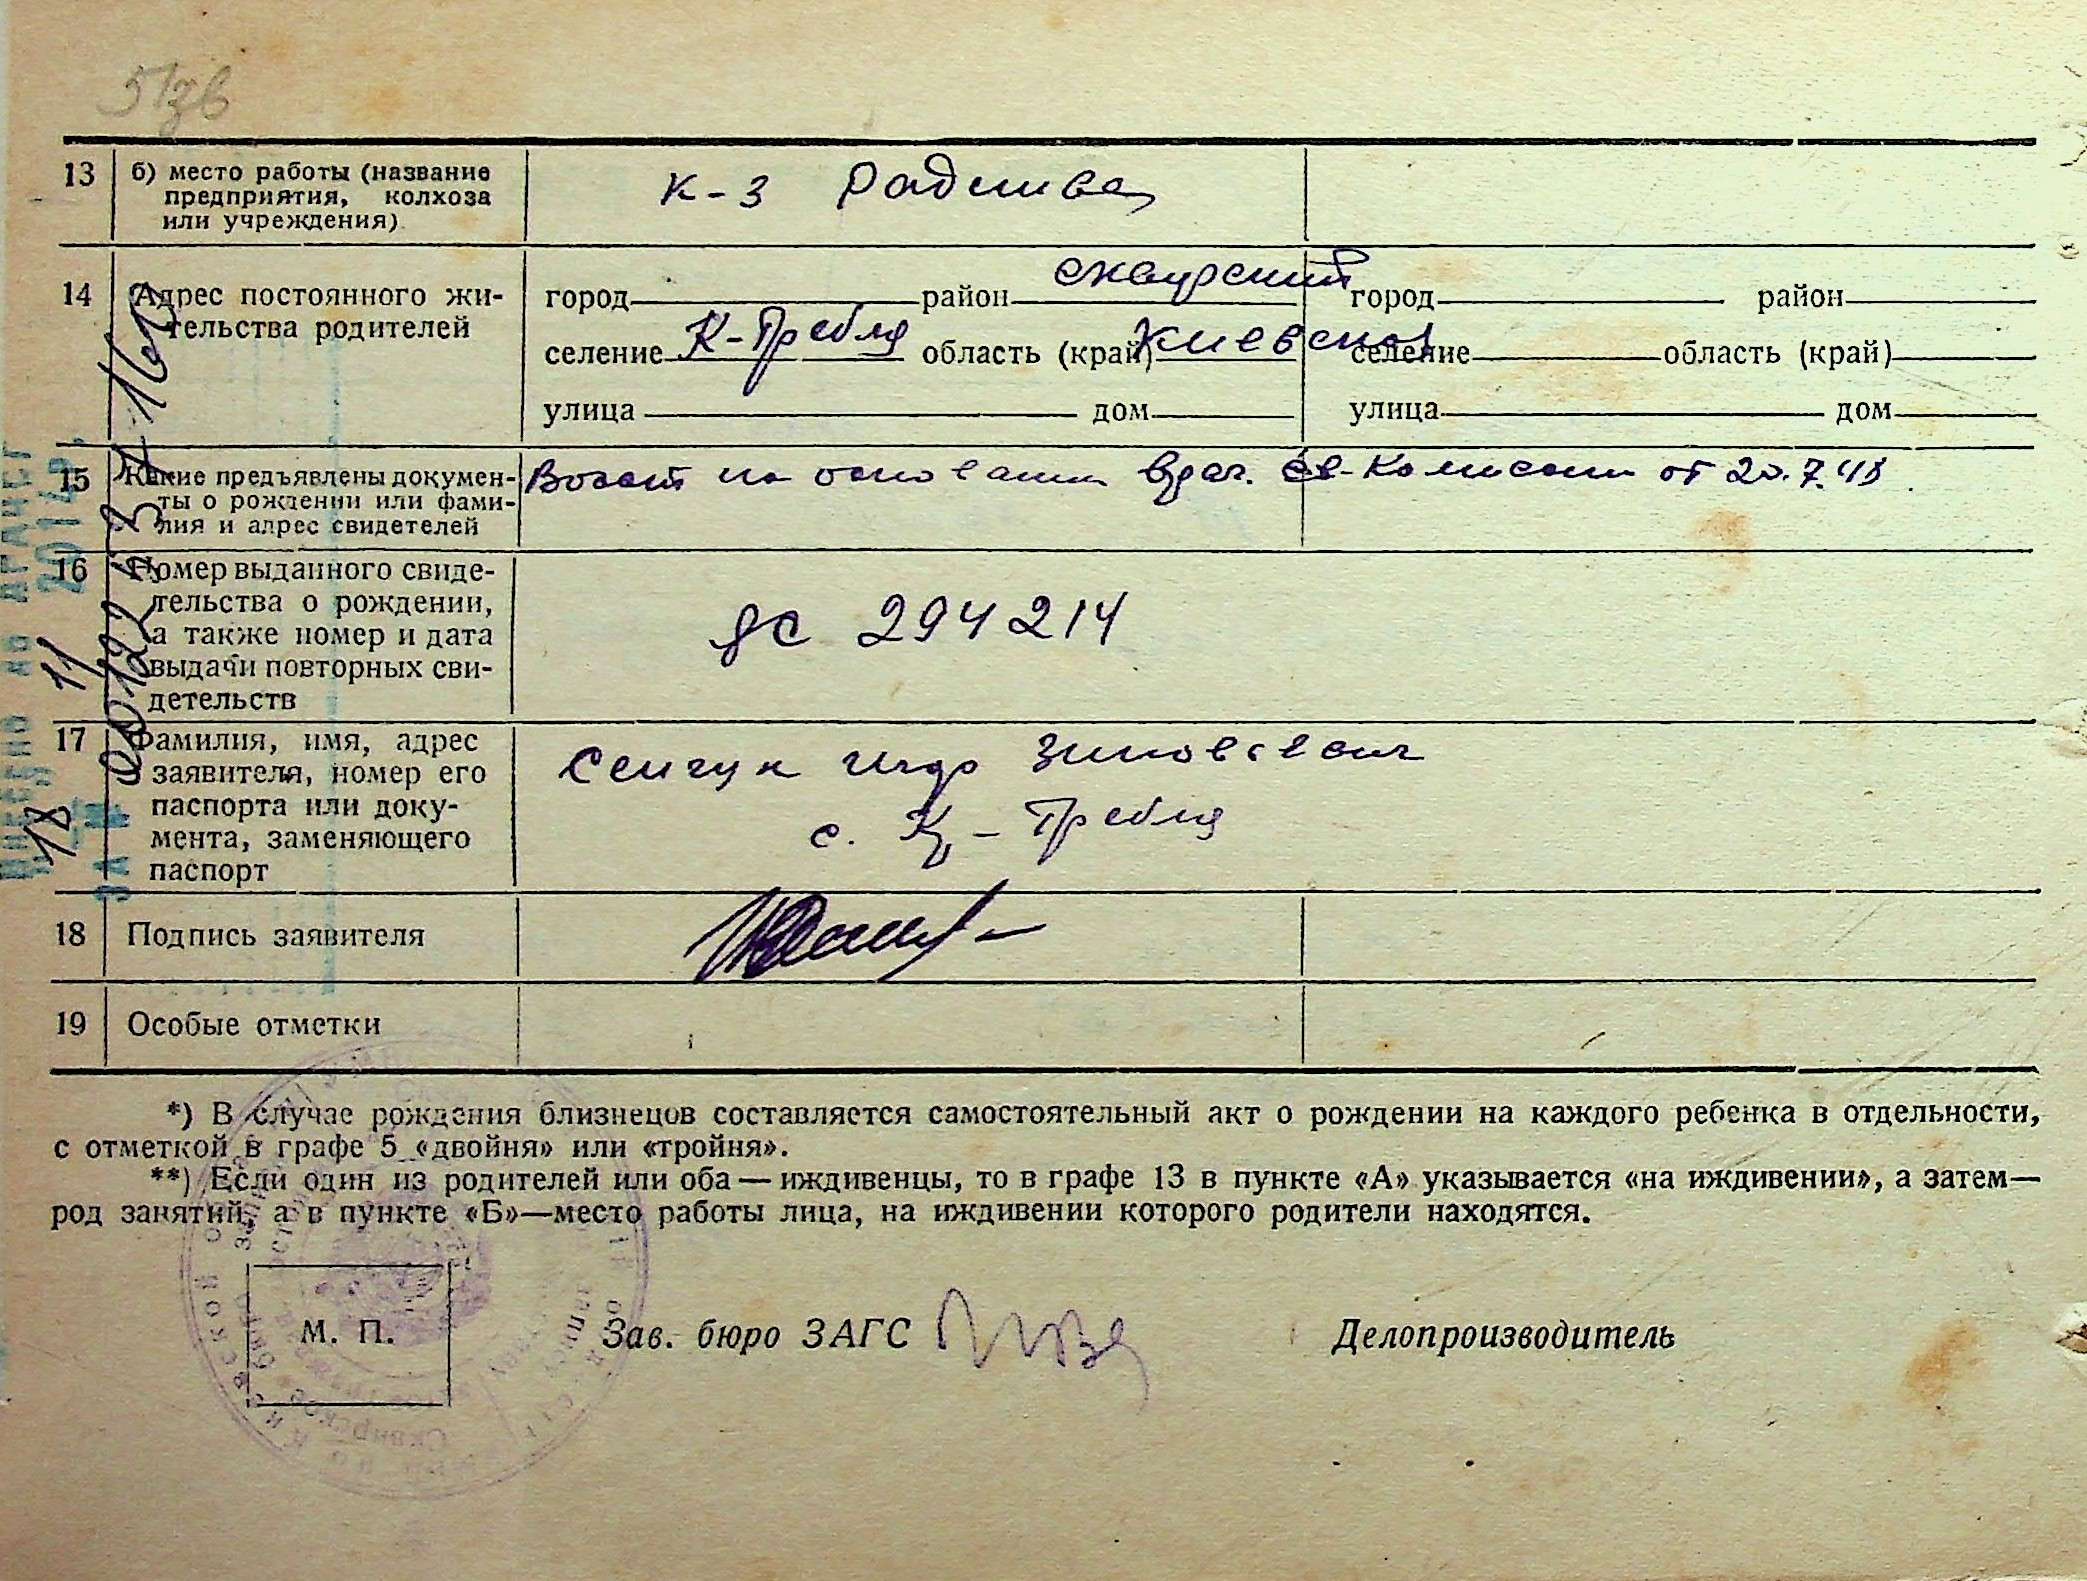 13 б) место работы (название
предприятия, колхоза
или учреждения)
К-з
14 Адрес постоянного жи-
тельства родителей
город район сквирский город район
селение К-Гребля область (край) Киевская селение область (край)
улица дом улица дом
15 Какие предъявлены докумен-
ты о рождении или фами-
лия и адрес свидетелей
на основании врач. Комиссии от 20.7.48
16 Номер выданного свиде-
тельства о рождении,
а также номер и дата
выдачи повторных сви-
детельств
294214
17 Фамилия, имя, адрес
заявителя, номер его
паспорта или доку-
мента, заменяющего
паспорт
Сенчук Зиновьевич
с. Кр-Гребля
18 Подпись заявителя
19 Особые отметки
*) В случае рождения близнецов составляется самостоятельный акт о рождении на каждого ребенка в отдельности,
с отметкой в графе 5 «двойня» или «тройня».
**) Если один из родителей или оба — иждивенцы, то в графе 13 в пункте «А» указывается «на иждивении», а затем—
род занятий, а в пункте «Б»—место работы лица, на иждивении которого родители находятся.
М. П. Зав. бюро ЗАГС Делопроизводитель